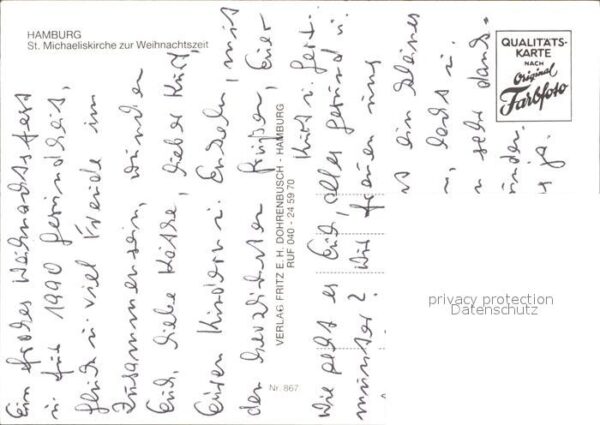 HAMBURG
St. Michaeliskirche zur Weihnachtszeit
QUALITÄTS-
KARTE
NACH
Original
Farbfoto
Ein frohes Weihnachtsfest
u. für 1990 Gesundheit,
Glück u. viel Freude im
Zusammensein, wünschen
Euch, liebe Käthe, lieber Kurt,
Euren Kindern u. Enkeln, mit
den herzlichsten Grüßen, Eure
Kurt u. Gert.
Wie geht es Euch, alles gesund u.
munter? Wir freuen uns
ein kleines
u.
sehr dank-
ja.
VERLAG FRITZ E. H. DOHRENBUSCH - HAMBURG
RUF 040 - 24 59 70
Nr. 867
privacy protection
Datenschutz